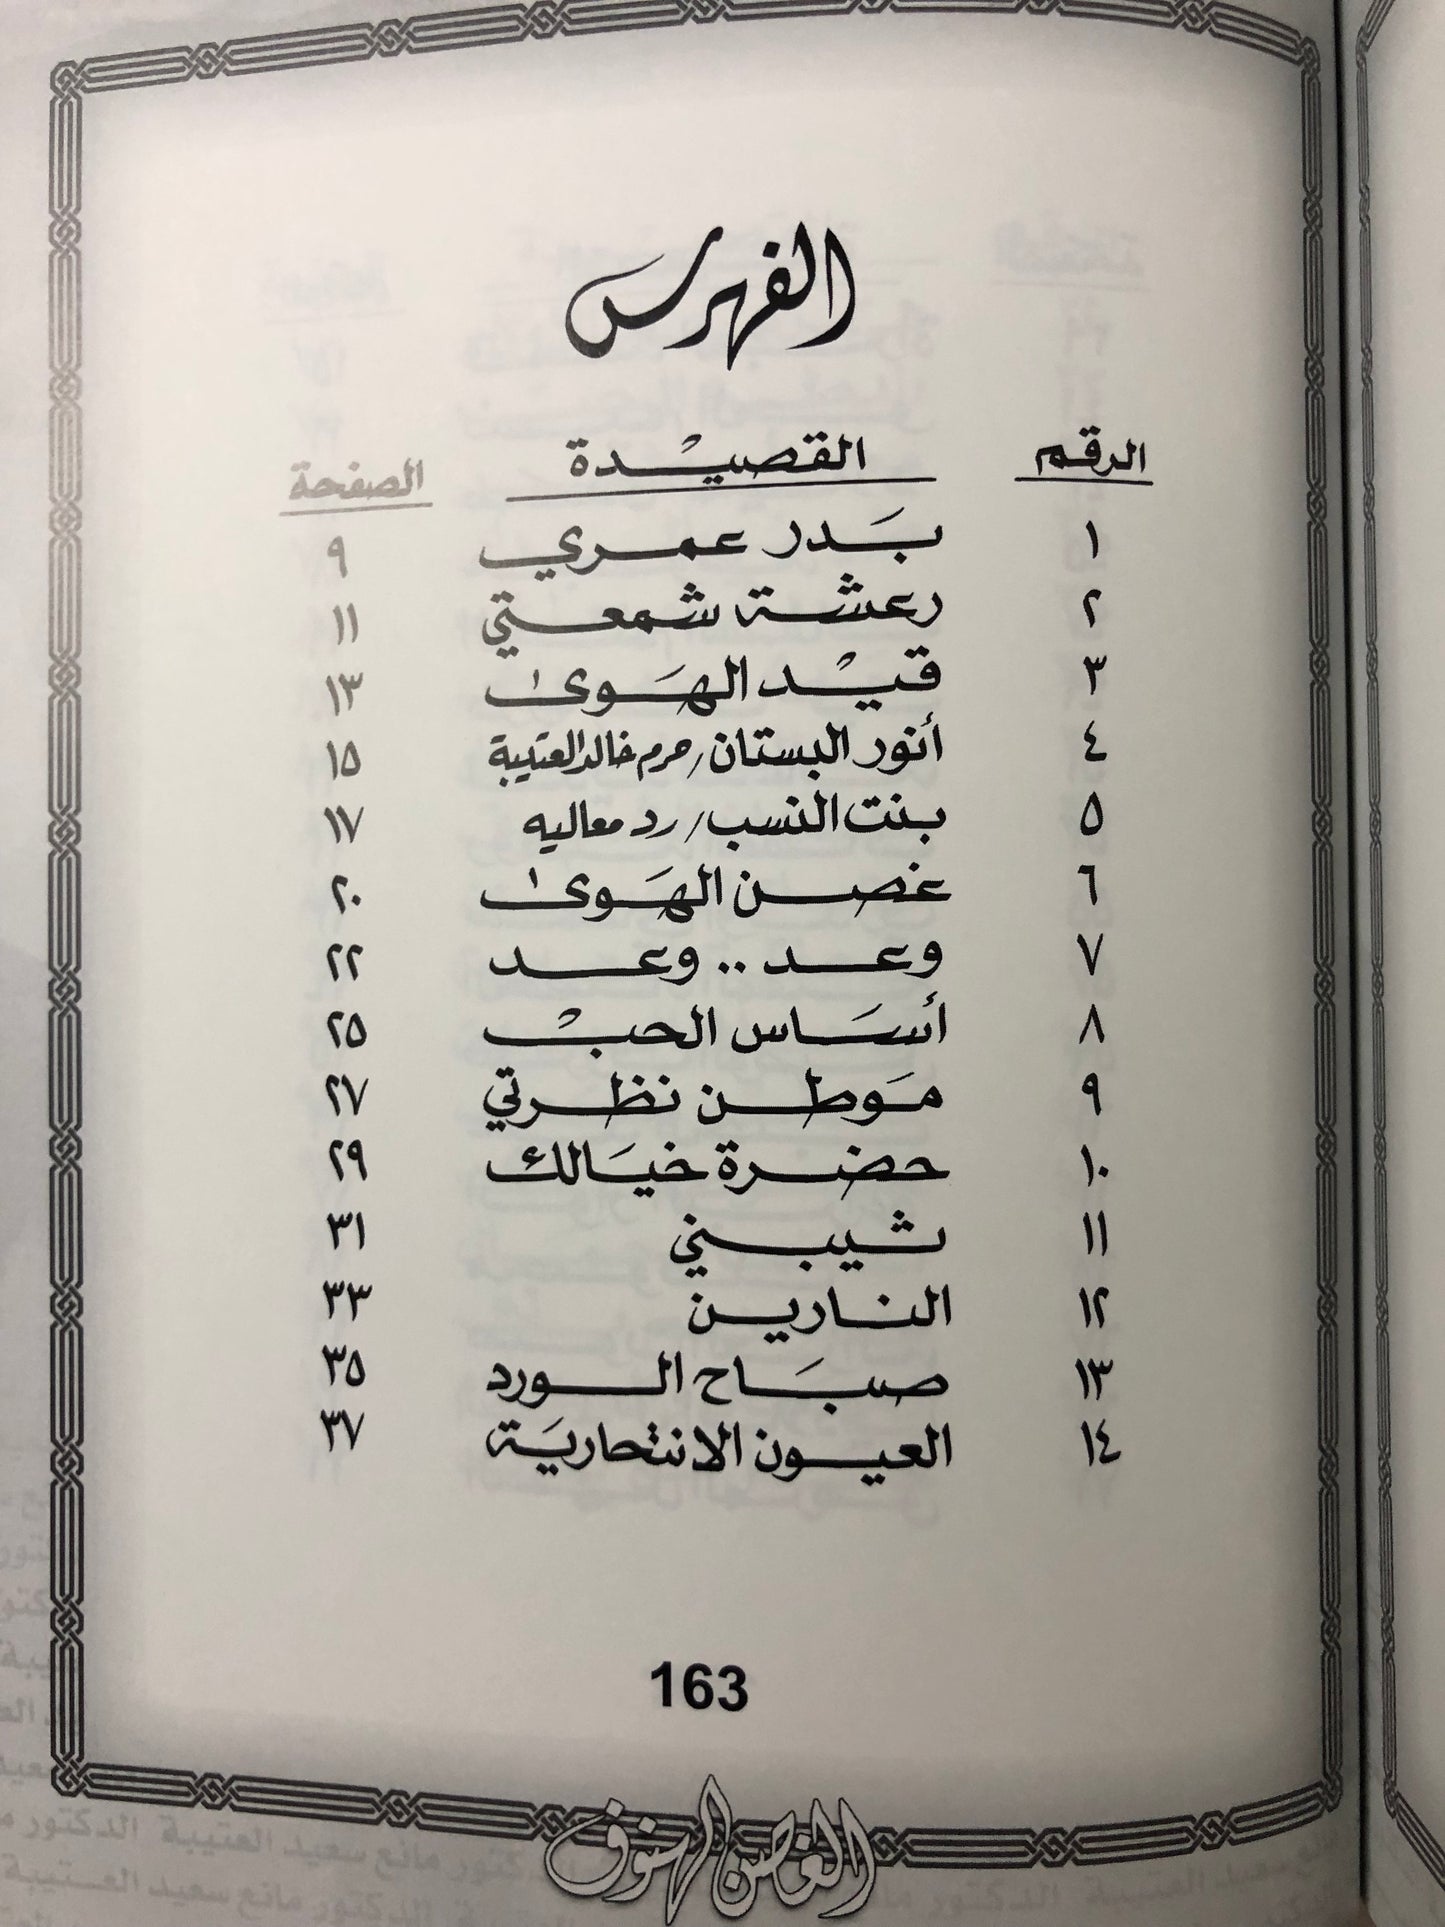 الفهرس
الرقم القصيدة الصفحة
١ بدر عمري ٩
٢ رعشة شمعتي ١١
٣ قيد الهوى ١٣
٤ أنور البستان/حرم خالد العتيبة ١٥
٥ بنت النسب/رد معاليه ١٧
٦ غصن الهوى ٢٠
٧ وعد .. وعد ٢٢
٨ أساس الحب ٢٥
٩ موطن نظرتي ٢٧
١٠ حضرة خيالك ٢٩
١١ شيبني ٣١
١٢ النارين ٣٣
١٣ صباح الورد ٣٥
١٤ العيون الانتحارية ٣٧
163
الغصن الهنوف
مانع سعيد العتيبة الدكتور
الدكتور مانع سعيد العتيبة